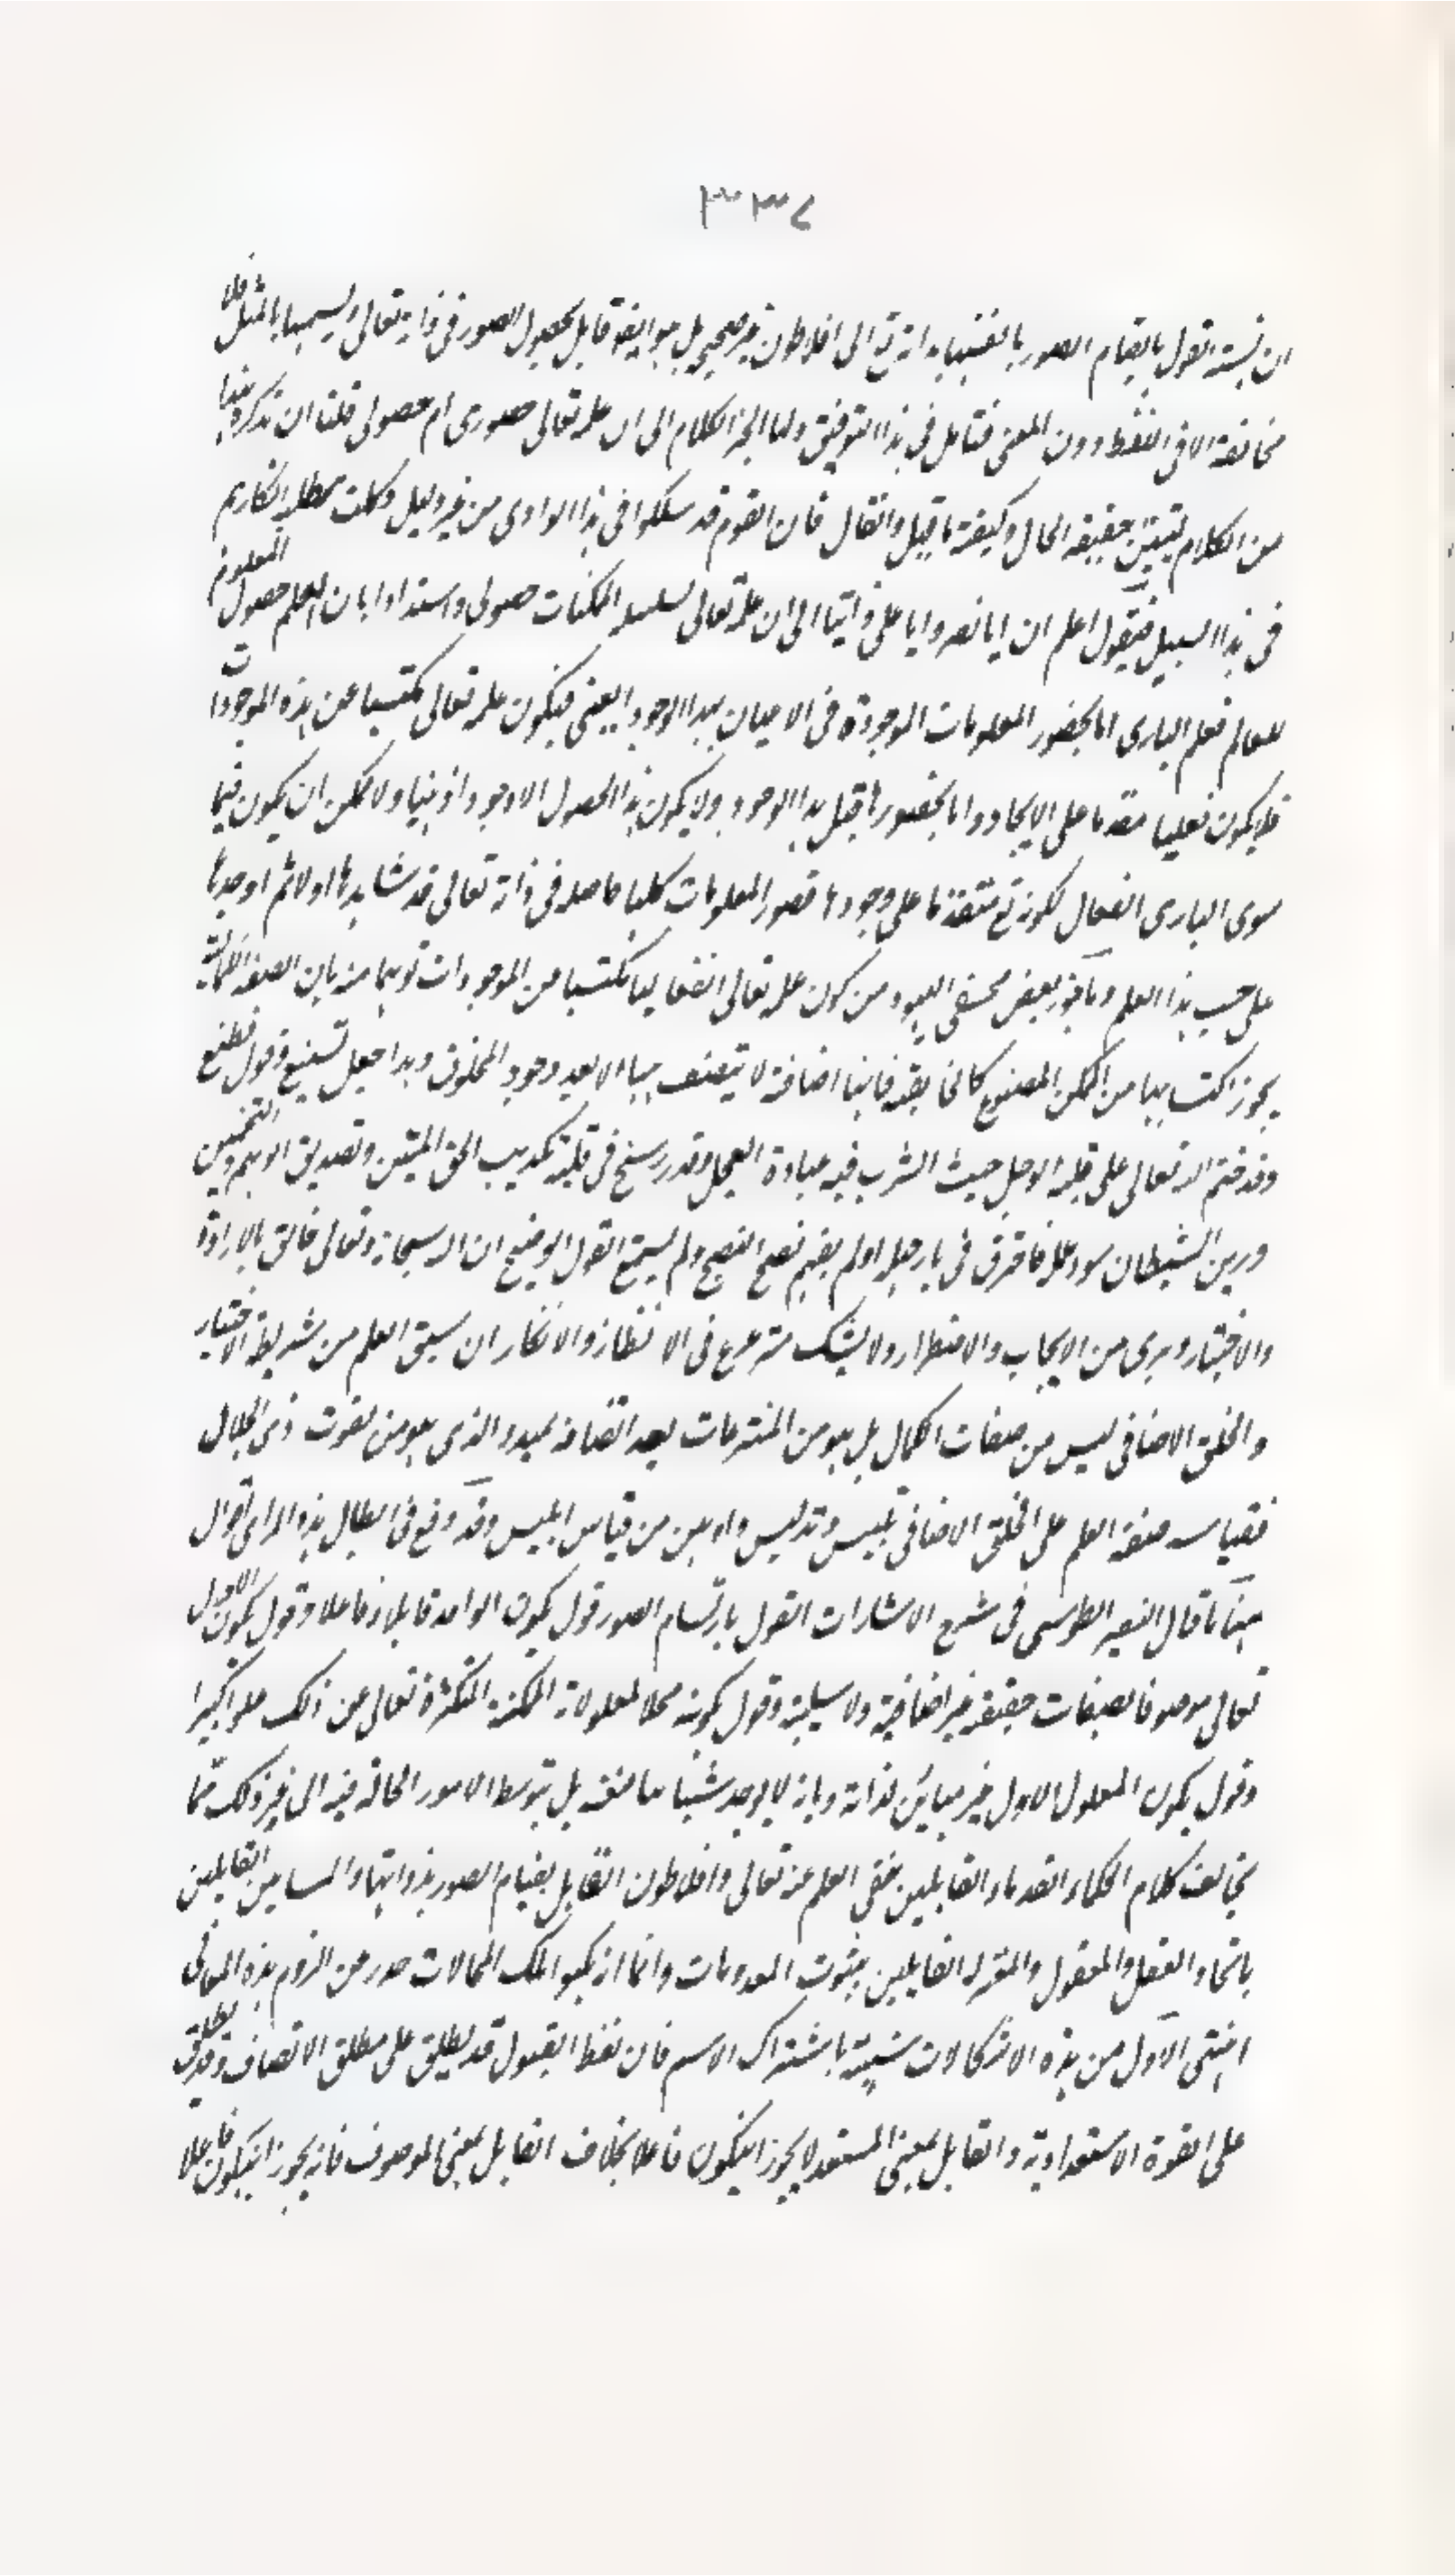 ٣٣٤
ان نسبته القول بالقيام الصور بانفسها بذاته تع الى افلاطون غير صحيح بل هو ايضا قابل بحصول الصور فى ذاته تعالى ويسميها بالمثل فلا
مخالفة الا فى اللفظ دون المعنى فتامل فى هذا التوفيق ولما انجر الكلام الى ان علمه تعالى حضورى ام حصولى فلنا ان نذكر نبذا
من الكلام ليتبين حقيقة الحال وكيفية ما قيل وانقال فان القوم قد سلكوا فى هذا الوادى من غير دليل وكلت مطايا افكارهم
فى هذا السبيل فنقول اعلم ان ابا نصر وابا على ذهبا الى ان علمه تعالى بسلسلة الممكنات حصولى واستدلوا بان العلم حصول المعلوم
للعالم فعلم البارى اما بحضور المعلومات الموجودة فى الاعيان بهذا الوجود العينى فيكون علمه تعالى مكتسبا عن هذه الموجودات
فلا يكون فعليا مقدما على الايجاد واما بحضورها قبل هذا الوجود ولا يكون هذا الحصول الا وجودا ذهنيا ولا يمكن ان يكون فيما
سوى البارى انفعال لكونه تع متقدما على وجودها فصور المعلومات كلها حاصلة فى ذاته تعالى قد شاهدها اولا ثم اوجدها
على حسب هذا العلم وما يجوز بعض محشى اليهود من كون علمه تعالى انفعاليا مكتسبا من الموجودات توهما منه باين الصفة الكمالية
يجوز اكتسابها من الممكن المصنوع كالخالقية فانها اضافة لا يتصف بها الا بعد وجود المخلوق وهذا جهل شنيع وقول فظيع
وقد ختم الله تعالى على قلبه الوجل حيث اشرب فيه عبادة العجل وقد رسخ فى قلبه تكذيب الحق المتين وتصديق الوهم والتخمين
ورين الشيطان سوء عمله فاغرق فى بار جهله اولم يفهم نصح النصيح ولم يسمع القول الوضيح ان الله سبحانه وتعالى خالق بالارادة
والاختيار وبرى من الايجاب والاضطرار ولا يشك مترعرع فى الانظار والافكار ان سبق العلم من شريطة الاختيار
والخلق الاضافى ليس من صفات الكمال بل هو من المنتزعات بعد اتصافه بمبدء الذى هو من نعوت ذى الجلال
فقياسه صفة العلم على الخلق الاضافى تلبيس وتدليس واوهن من قياس ابليس وقد وقع فى ابطال هذا الراى اقوال
منها ما قال النصير الطوسى فى شرح الاشارات القول بارتسام الصور قول بكون الواحد قابلا وفاعلا وقول بكون الاول
تعالى موصوفا بصفات حقيقة غير اضافية ولا سلبية وقول بكونه محلا لمعلولاته الممكنة المتكثرة تعالى عن ذلك علوا كبيرا
وقول بكون المعلول الاول غير مباين لذاته وبانه لا يوجد شيئا مما منعه بل بتوسط الامور الحالة فيه الى غير ذلك مما
يخالف كلام الحكماء القدماء القائلين بنفى العلم عنه تعالى وافلاطون القائل بقيام الصور بذواتها والمشائين القائلين
باتحاد العقل والمعقول والمعتزلة القائلين بثبوت المعدومات وانما ارتكبوا تلك المحالات حذرا عن الزوم هذه المعانى
انتهى الاول من هذه الاشكالات شبهة باشتراك الاسم فان لفظ القبول قد يطلق على مطلق الاتصاف وقد يطلق
على القوة الاستعدادية والقابل بمعنى المستعد لا يجوز ان يكون فاعلا بخلاف القابل بمعنى الموصوف فانه يجوز ان يكون فاعلا